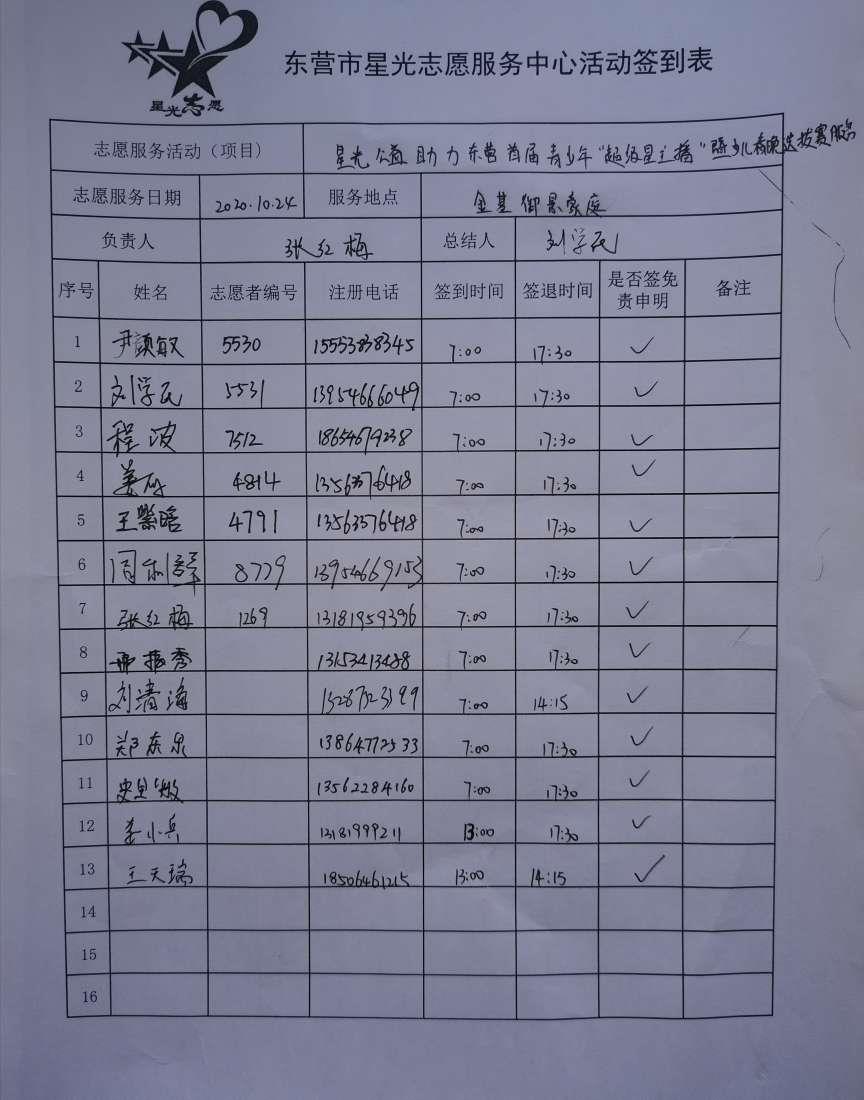 星光志愿
东营市星光志愿服务中心活动签到表
志愿服务活动（项目） 星光公益助力东营首届青少年"超级星主播"暨少儿春晚选拔赛报名
志愿服务日期 2020.10.24 服务地点 金基御景豪庭
负责人 张红梅 总结人 刘学民
序号 姓名 志愿者编号 注册电话 签到时间 签退时间 是否签免责申明 备注
1 尹颜敏 5530 15553838345 7:00 17:30 ✓
2 刘学民 5531 13954666049 7:00 17:30 ✓
3 程波 7512 18654679238 7:00 17:30 ✓
4 姜 4814 13563576418 7:00 17:30 ✓
5 王紫晗 4791 13563576418 7:00 17:30 ✓
6 周利群 8779 13954669153 7:00 17:30 ✓
7 张红梅 1269 13181959396 7:00 17:30 ✓
8 邢振秀 13153413488 7:00 17:30 ✓
9 刘清海 7:00 14:15 ✓
10 郑庆泉 13864772533 7:00 17:30 ✓
11 史 敏 13562284160 7:00 17:30 ✓
12 李小兵 13181999211 13:00 17:30 ✓
13 王天瑞 18506461215 13:00 14:15 ✓
14
15
16